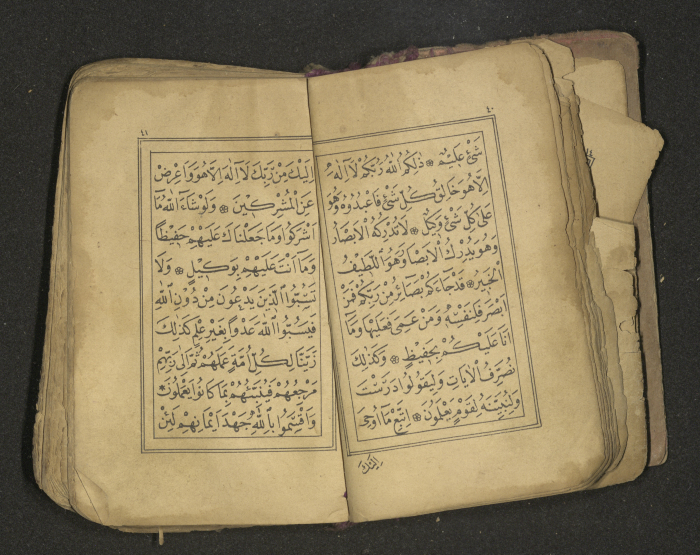 ٤٠
شَىْءٍ عَلِيمٌ ۞ ذٰلِكُمُ اللّٰهُ رَبُّكُمْ لَآ اِلٰهَ
اِلَّا هُوَ خَالِقُ كُلِّ شَىْءٍ فَاعْبُدُوهُ وَهُوَ
عَلٰى كُلِّ شَىْءٍ وَكِيلٌ ۞ لَا تُدْرِكُهُ الْاَبْصَارُ
وَهُوَ يُدْرِكُ الْاَبْصَارَ وَهُوَ اللَّطِيفُ
الْخَبِيرُ ۞ قَدْ جَآءَكُمْ بَصَآئِرُ مِنْ رَبِّكُمْ فَمَنْ
اَبْصَرَ فَلِنَفْسِهٖ وَمَنْ عَمِىَ فَعَلَيْهَا وَمَآ
اَنَا عَلَيْكُمْ بِحَفِيظٍ ۞ وَكَذٰلِكَ
نُصَرِّفُ الْاٰيَاتِ وَلِيَقُولُوا دَرَسْتَ
وَلِنُبَيِّنَهُ لِقَوْمٍ يَعْلَمُونَ ۞ اِتَّبِعْ مَآ اُوحِىَ
اِلَيْكَ
٤١
اِلَيْكَ مِنْ رَبِّكَ لَآ اِلٰهَ اِلَّا هُوَ وَاَعْرِضْ
عَنِ الْمُشْرِكِينَ ۞ وَلَوْ شَآءَ اللّٰهُ مَآ
اَشْرَكُوا وَمَا جَعَلْنَاكَ عَلَيْهِمْ حَفِيظًا
وَمَآ اَنْتَ عَلَيْهِمْ بِوَكِيلٍ ۞ وَلَا
تَسُبُّوا الَّذِينَ يَدْعُونَ مِنْ دُونِ اللّٰهِ
فَيَسُبُّوا اللّٰهَ عَدْوًا بِغَيْرِ عِلْمٍ كَذٰلِكَ
زَيَّنَّا لِكُلِّ اُمَّةٍ عَمَلَهُمْ ثُمَّ اِلٰى رَبِّهِمْ
مَرْجِعُهُمْ فَيُنَبِّئُهُمْ بِمَا كَانُوا يَعْمَلُونَ ۞
وَاَقْسَمُوا بِاللّٰهِ جَهْدَ اَيْمَانِهِمْ لَئِنْ